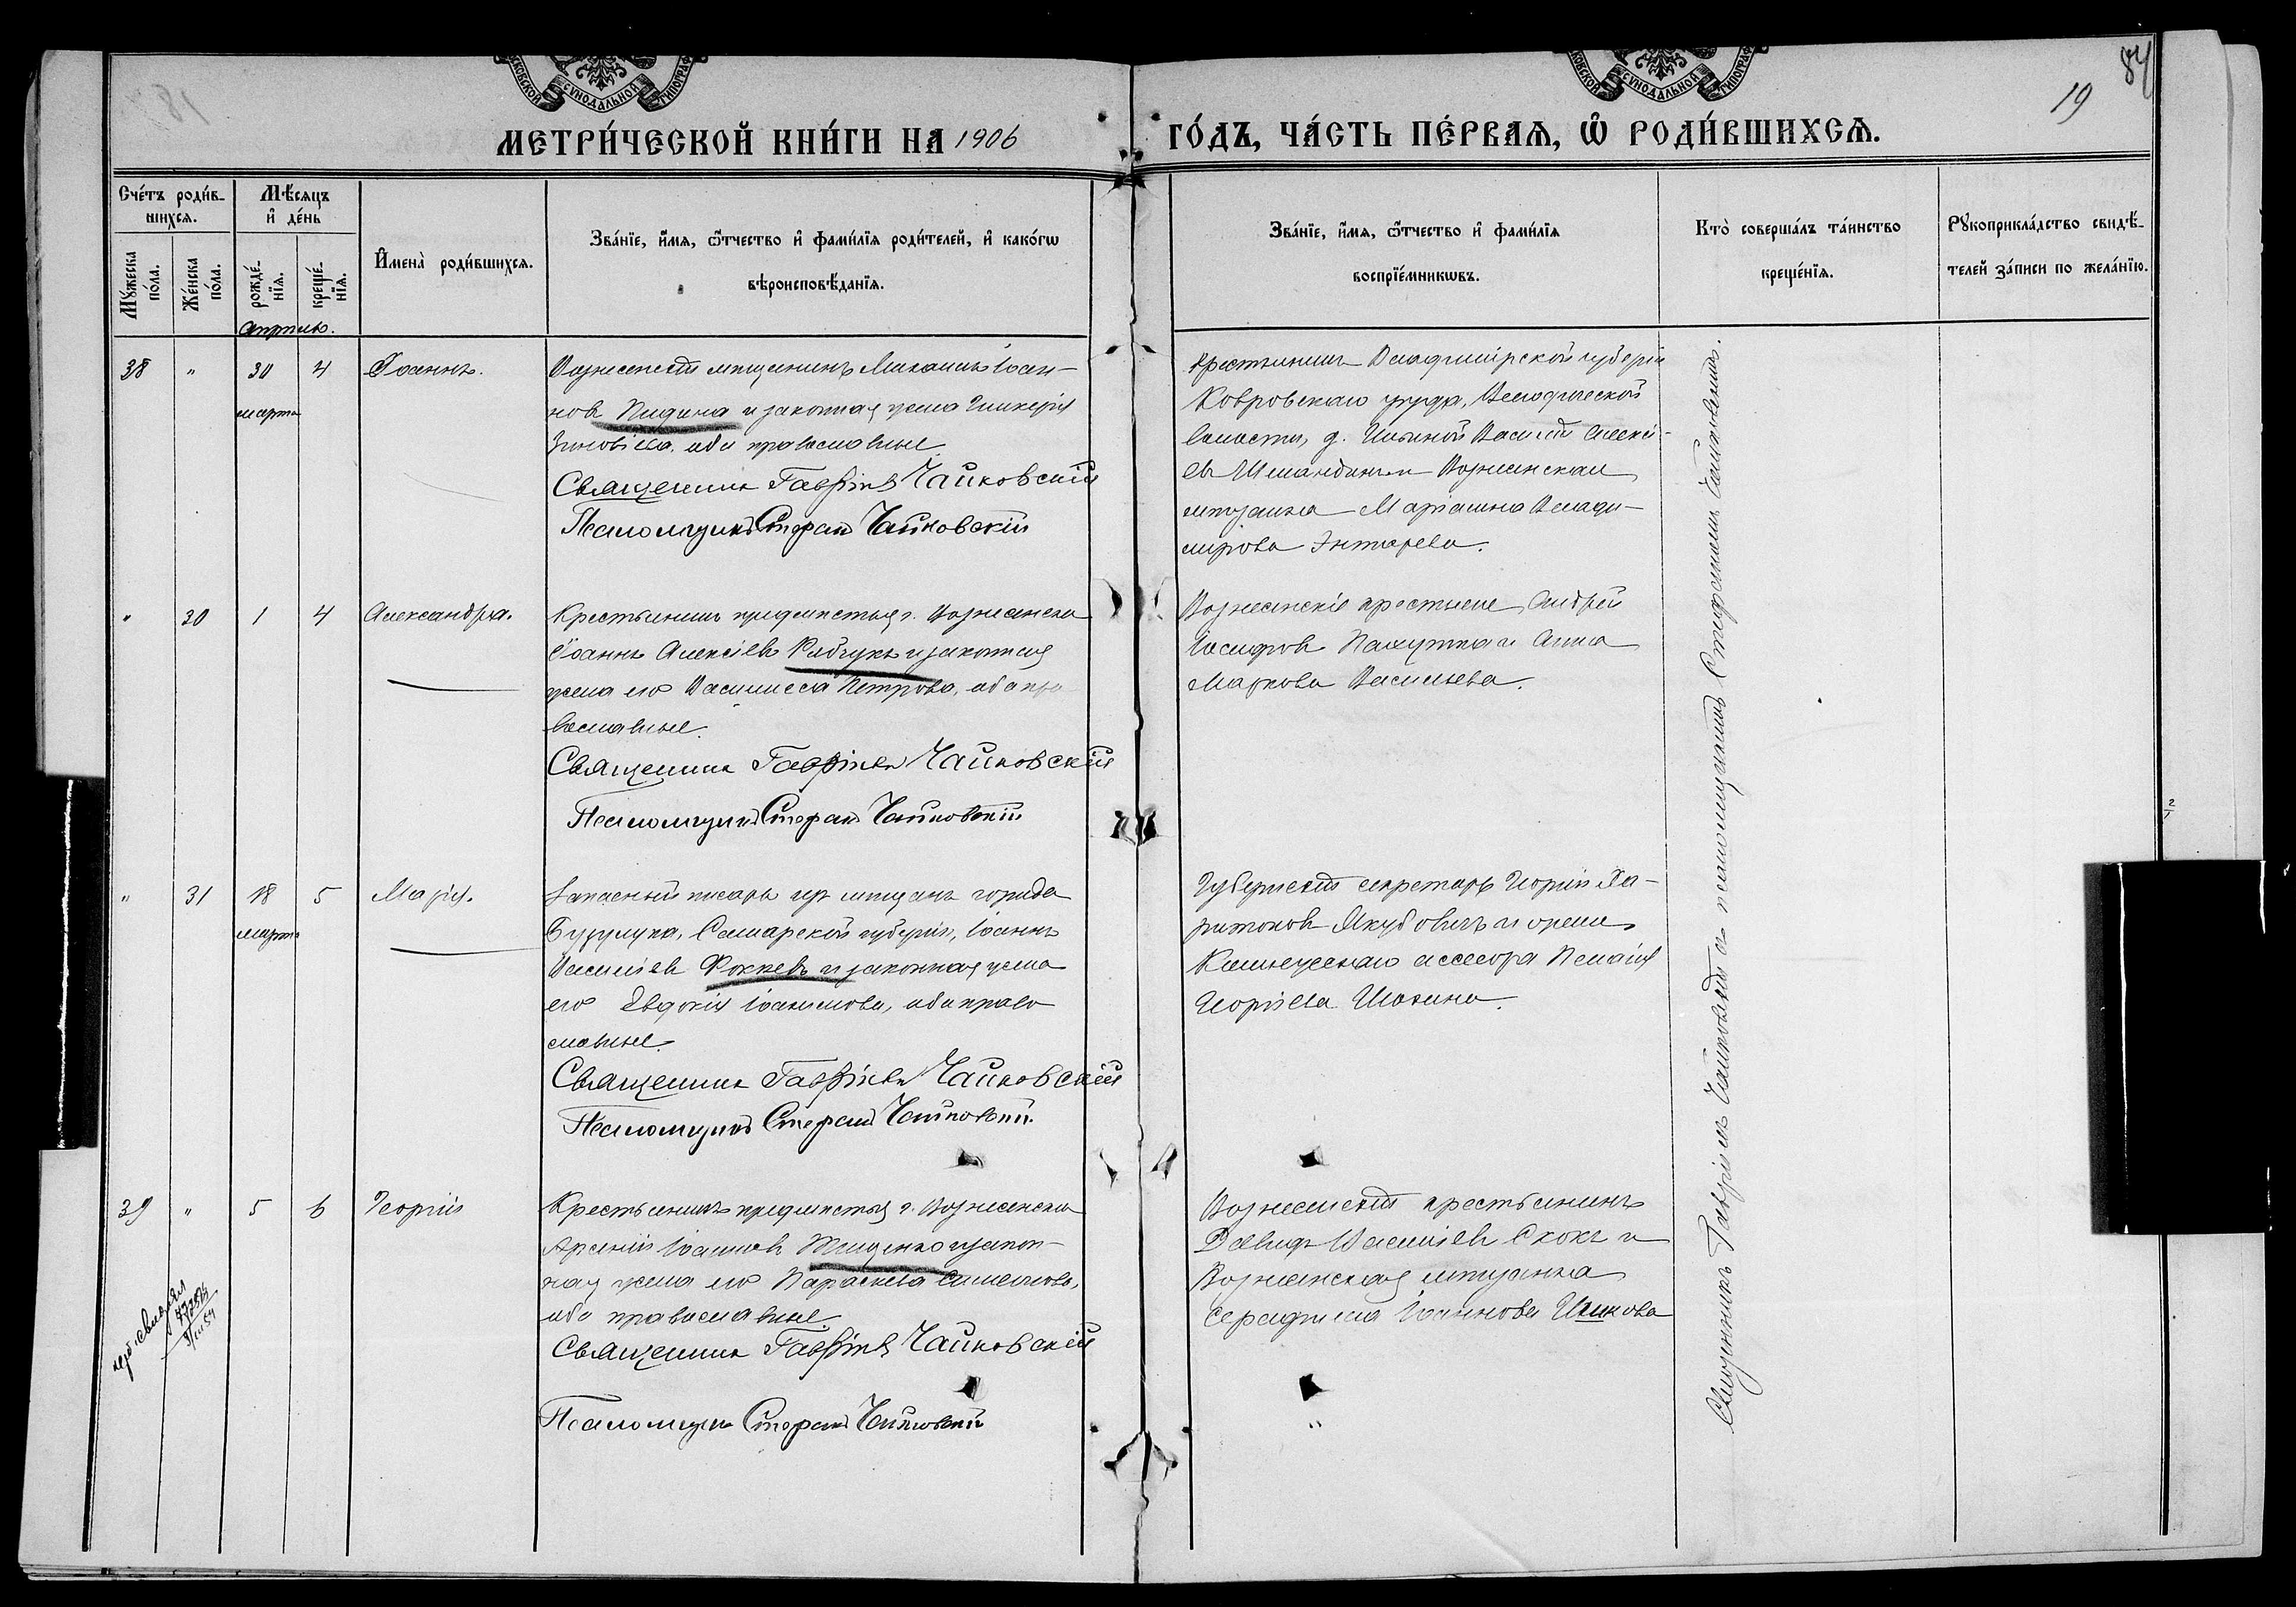 МЕТРИ́ЧЕСКОЙ КНИ́ГИ НА 1906
ГО́ДЪ, ЧА́СТЬ ПЕ́РВАѦ, Ѽ РОДИ́ВШИХСѦ.
19
84
Сче́тъ роди́в-
шихсѧ.
Мꙋ́жеска по́ла.
Же́нска по́ла.
Мѣ́сѧцъ
и҆ де́нь
рожде́-
нїѧ.
креще́-
нїѧ.
И҆мена̀ роди́вшихсѧ.
Зва́нїе, и҆́мѧ, ѻ҆́тчество и҆ фами́лїѧ роди́телей, и҆ како́гѡ
вѣроисповѣ́данїѧ.
Зва́нїе, и҆́мѧ, ѻ҆́тчество и҆ фами́лїѧ
воспрїе́мникѡвъ.
Кто̀ соверша́лъ та́инство
креще́нїѧ.
Рꙋкоприкла́дство свидѣ́-
телей за́писи по жела́нїю.
Апрѣль.
38 " 30 4 Іоаннъ.
марта
Вознесенскій мѣщанинъ Михаилъ Іоан-
новъ Пидина и законная жена Гликерія
Зиновіева, оба православные
Священникъ Гавріилъ Чайковскій
Псаломщикъ Стефанъ Чайковскій
Крестьянинъ Владимірской губерніи
Ковровскаго уѣзда,
волости, д. Ильиной Василій Алексѣ-
евъ и Вознесенская
мѣщанка Маріанна Влади-
мірова
" 30 1 4 Александра.
Крестьянинъ предмѣстья г. Вознесенска
Іоаннъ Алексіевъ Рябчукъ и законная
жена его Василисса Петрова, оба пра
вославные.
Священникъ Гавріилъ Чайковскій
Псаломщикъ Стефанъ Чайковскій
Вознесенскіе крестьяне Андрей
Іосифовъ и Анна
Маркова Васильева.
" 31 18 5 Марія.
марта
Запасный писарь изъ мѣщанъ города
Бузулука, Самарской губерніи, Іоаннъ
Василіевъ Фоккевъ и законная жена
его Евдокія Іоакимова, оба право
славные.
Священникъ Гавріилъ Чайковскій
Псаломщикъ Стефанъ Чайковскій.
Губернскій секретарь Георгій Ха-
ритоновъ Якубовичъ и жена
Коллежскаго ассесора Пелагія
Георгіева Шохина.
39 " 5 6 Георгій
Крестьянинъ предмѣстья г. Вознесенска
Арсеній Іоанновъ Тищенко и закон-
ная жена его Параскева Симеонова,
оба православные
Священникъ Гавріилъ Чайковскій
Псаломщикъ Стефанъ Чайковскій
Вознесенскій крестьянинъ
Давидъ Василіевъ Скокъ и
Вознесенская мѣщанка
Серафима Іоаннова
Священникъ Гавріилъ Чайковскій съ псаломщикомъ Стефаномъ Чайковскимъ.